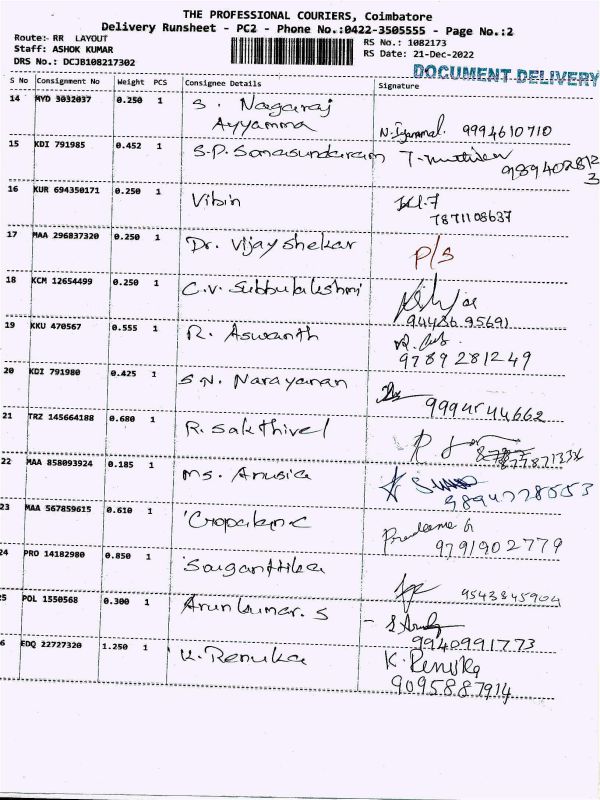 THE PROFESSIONAL COURIERS, Coimbatore
Delivery Runsheet - PC2 - Phone No.:0422-3505555 - Page No.:2
Route:- RR LAYOUT
Staff: ASHOK KUMAR
DRS No.: DCJB108217302
RS No.: 1082173
RS Date: 21-Dec-2022
DOCUMENT DELIVERY
S No Consignment No Weight PCS Consignee Details Signature
14 MYD 3032037 0.250 1 S. Nagaraj
Ayyamma 9994610710
15 KDI 791985 0.452 1 S.P. Somasundaram
16 KUR 694350171 0.250 1 Vibin
7871108637
17 MAA 296837320 0.250 1 Dr. Vijayshekar P/S
18 KCM 12654499 0.250 1 C.V. Subbulakshmi
94486 95691
19 KKU 470567 0.555 1 R. Aswanth
9789281249
20 KDI 791980 0.425 1 S.N. Narayanan
9994544662
21 TRZ 145664188 0.680 1 R. Sakthivel
22 MAA 858093924 0.185 1 Ms. Anusia
23 MAA 567859615 0.610 1
9791902779
24 PRO 14182980 0.850 1
9543845904
25 POL 1550568 0.300 1 Arunkumar. S
9940991773
26 EDQ 22727320 1.250 1 K. Renuka K. Renuka
9095887914